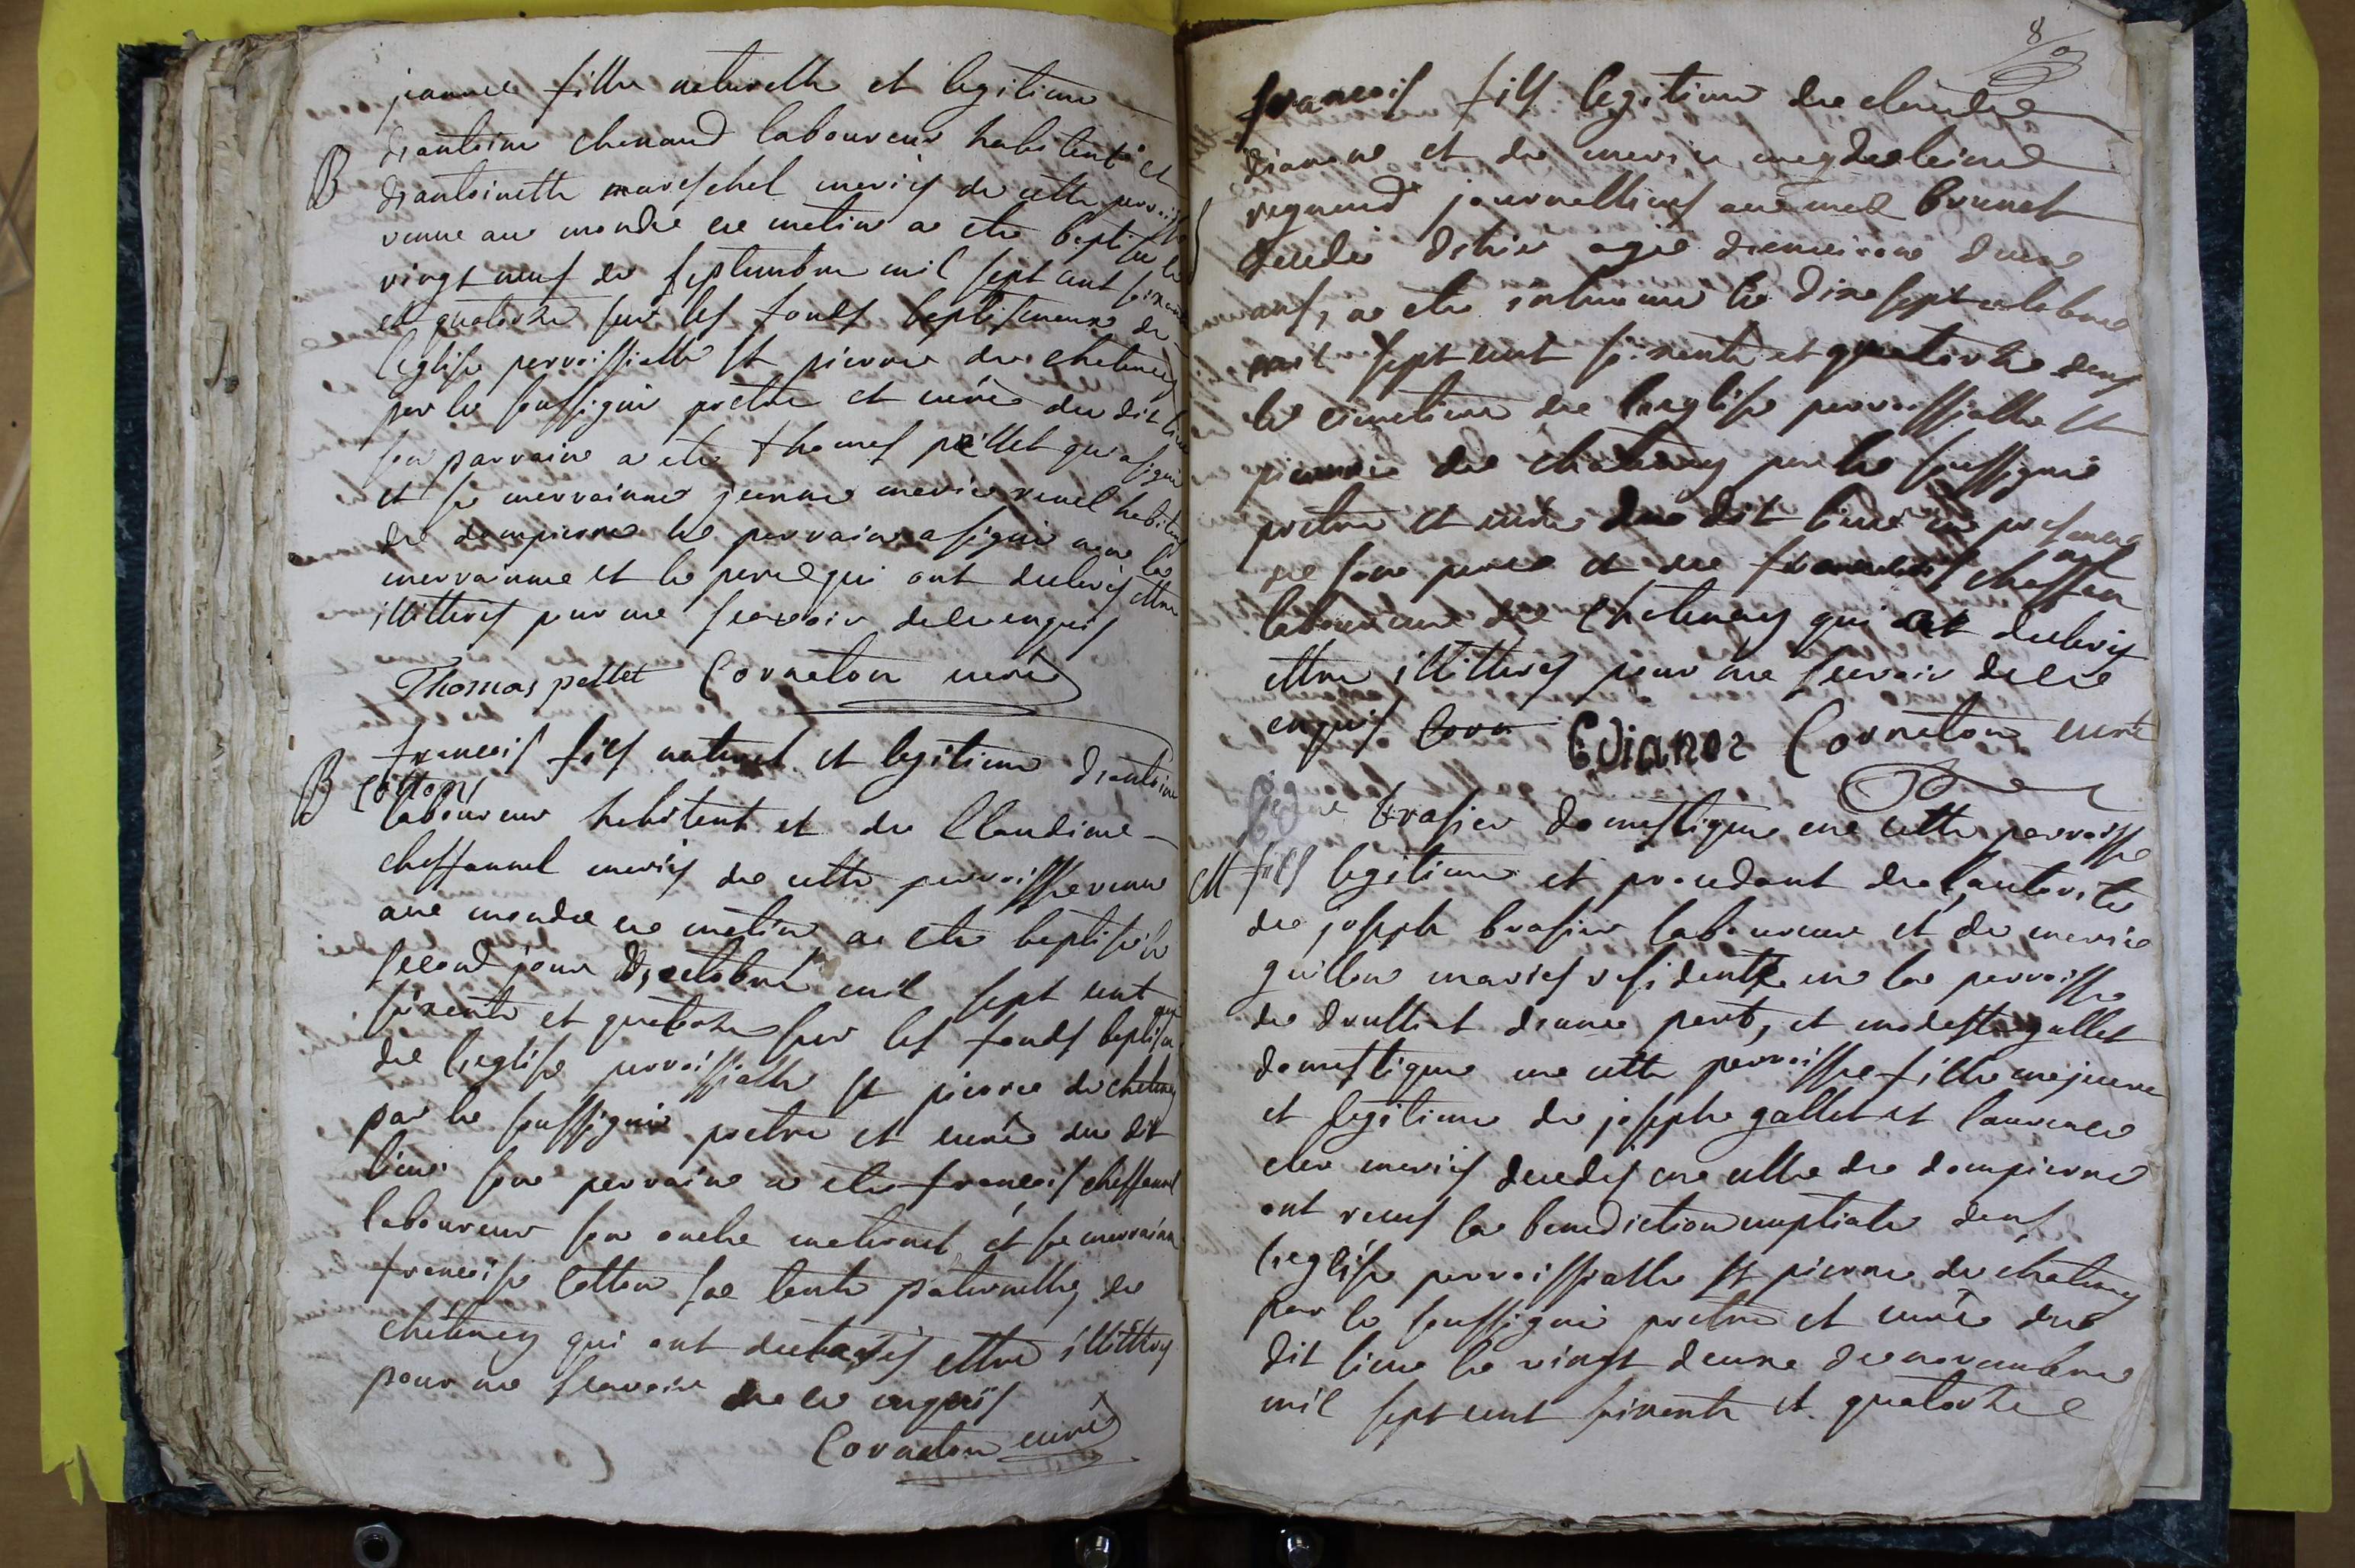 jeanne fille naturelle et legitime
B
d'antoine chanard laboureur habitant et
d'antoinette mareschal mariés de cette parroisse
venue au monde ce matin a ete baptisée le
vingt neuf de septembre mil sept cent soixante
et quatorze sur les fonds baptismaux de
l'eglise parroissialle st pierre de chatenay
par le soussigné pretre et curé du dit lieu
son parrain a ete thomas pellet qui a signé
et sa marrainne jeanne marie habitants
de dompierre le parrain a signé non la
marrainne et le pere qui ont declarés ettre
illitterés pour ne scavoir de ce enquis
Thomas pellet Corneton curé
B
francois fils naturel et legitime d'antoine
cotton
laboureur habitant et de Claudine
cheffannel mariés de cette parroisse venu
au monde ce matin a ete baptisé le
second jour d'octobre mil sept cent
soixante et quatorze sur les fonds baptism
de l'eglise parroissialle st pierre de chatenay
par le soussigné pretre et curé du dit
lieu son parrain a ete francois cheffannel
laboureur son oncle maternel et sa marrainne
francoise cotton sa tante paternelle de
chatenay qui ont declarés ettre illitterés
pour ne scavoir de ce enquis
Corneton curé
8
francois fils legitime de claude
et de marie magdeleine
regnaud journalliers
decedé d'hier agé d'environ deux
ans, a ete inhumé le dix sept octobre
mil sept cent soixante et quatorze dans
le cimetiere de l'eglise parroissialle st
pierre de chatenay par le soussigné
pretre et curé du dit lieu en presence
de son pere et de
laboureur de chatenay qui ont declarés
ettre illitterés pour ne scavoir de ce
enquis Corn Corneton curé
brasier domestique en cette parroisse
M fils legitime et procedant de l'autorité
de joseph brasier laboureur et de marie
guillon mariés residents en la parroisse
de d'une part, et modeste gallet
domestique en cette parroisse fille majeure
et legitime de joseph gallet et laurence
mariés decedés en celle de dompierre
ont recus la benediction nuptiale dans
l'eglise parroissialle st pierre de chatenay
par le soussigné pretre et curé du
dit lieu le vingt deuxe de novembre
mil sept cent soixante et quatorze